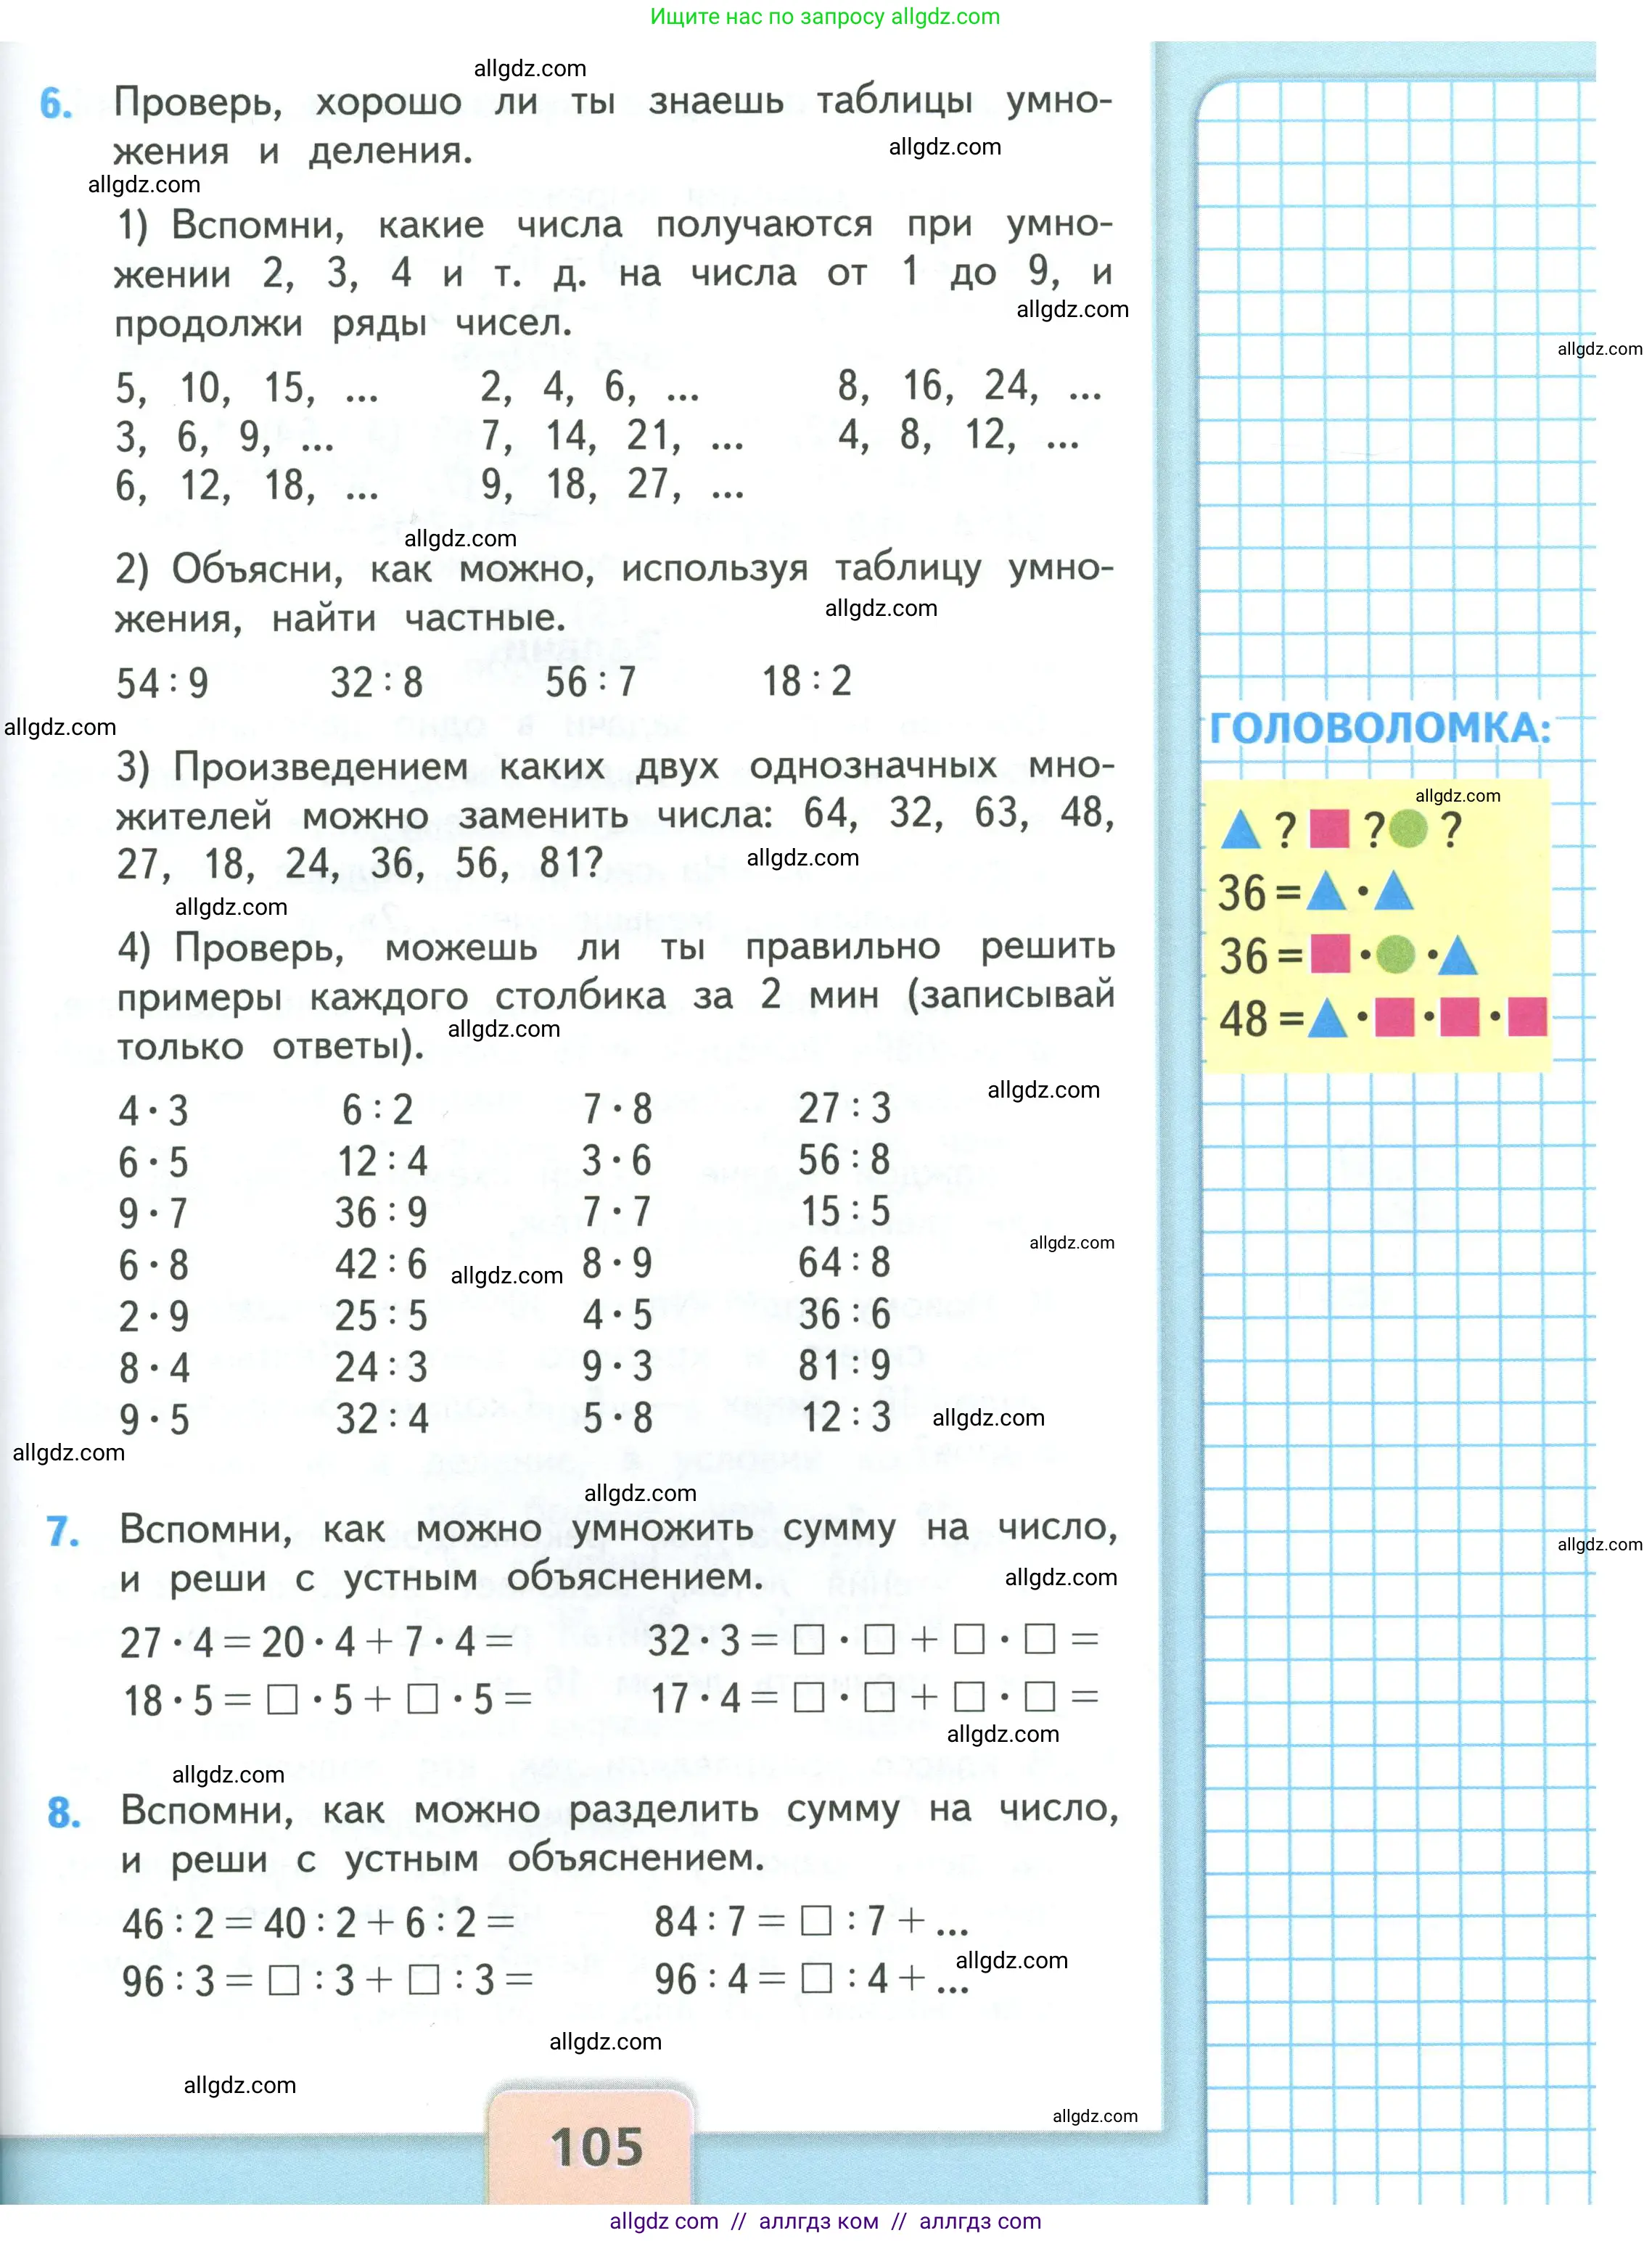 Ищите нас по запросу allgdz.com
allgdz.com
6. Проверь, хорошо ли ты знаешь таблицы умно-
allgdz.com
жения и деления.
allgdz.com
1) Вспомни, какие числа получаются при умно-
жении 2, 3, 4 и т. д. на числа от 1 до 9, и
allgdz.com
продолжи ряды чисел.
allgdz.com
5, 10, 15, ... 2, 4, 6, ... 8, 16, 24, ...
3, 6, 9, ... 7, 14, 21, ... 4, 8, 12, ...
6, 12, 18, ... 9, 18, 27, ...
allgdz.com
2) Объясни, как можно, используя таблицу умно-
жения, найти частные.
allgdz.com
54 : 9 32 : 8 56 : 7 18 : 2
allgdz.com
3) Произведением каких двух однозначных мно-
жителей можно заменить числа: 64, 32, 63, 48,
27, 18, 24, 36, 56, 81?
allgdz.com
allgdz.com
4) Проверь, можешь ли ты правильно решить
примеры каждого столбика за 2 мин (записывай
только ответы).
allgdz.com
allgdz.com
4 · 3 6 : 2 7 · 8 27 : 3
6 · 5 12 : 4 3 · 6 56 : 8
9 · 7 36 : 9 7 · 7 15 : 5
allgdz.com
6 · 8 42 : 6 8 · 9 64 : 8
allgdz.com
2 · 9 25 : 5 4 · 5 36 : 6
8 · 4 24 : 3 9 · 3 81 : 9
9 · 5 32 : 4 5 · 8 12 : 3
allgdz.com
allgdz.com
allgdz.com
7. Вспомни, как можно умножить сумму на число,
allgdz.com
и реши с устным объяснением.
allgdz.com
27 · 4 = 20 · 4 + 7 · 4 = 32 · 3 = □ · □ + □ · □ =
18 · 5 = □ · 5 + □ · 5 = 17 · 4 = □ · □ + □ · □ =
allgdz.com
allgdz.com
8. Вспомни, как можно разделить сумму на число,
и реши с устным объяснением.
46 : 2 = 40 : 2 + 6 : 2 = 84 : 7 = □ : 7 + ...
allgdz.com
96 : 3 = □ : 3 + □ : 3 = 96 : 4 = □ : 4 + ...
allgdz.com
allgdz.com
allgdz.com
105
ГОЛОВОЛОМКА:
allgdz.com
▲ ? ■ ? ● ?
36 = ▲ · ▲
36 = ■ · ● · ▲
48 = ▲ · ■ · ■ · ■
allgdz com // аллгдз ком // аллгдз com